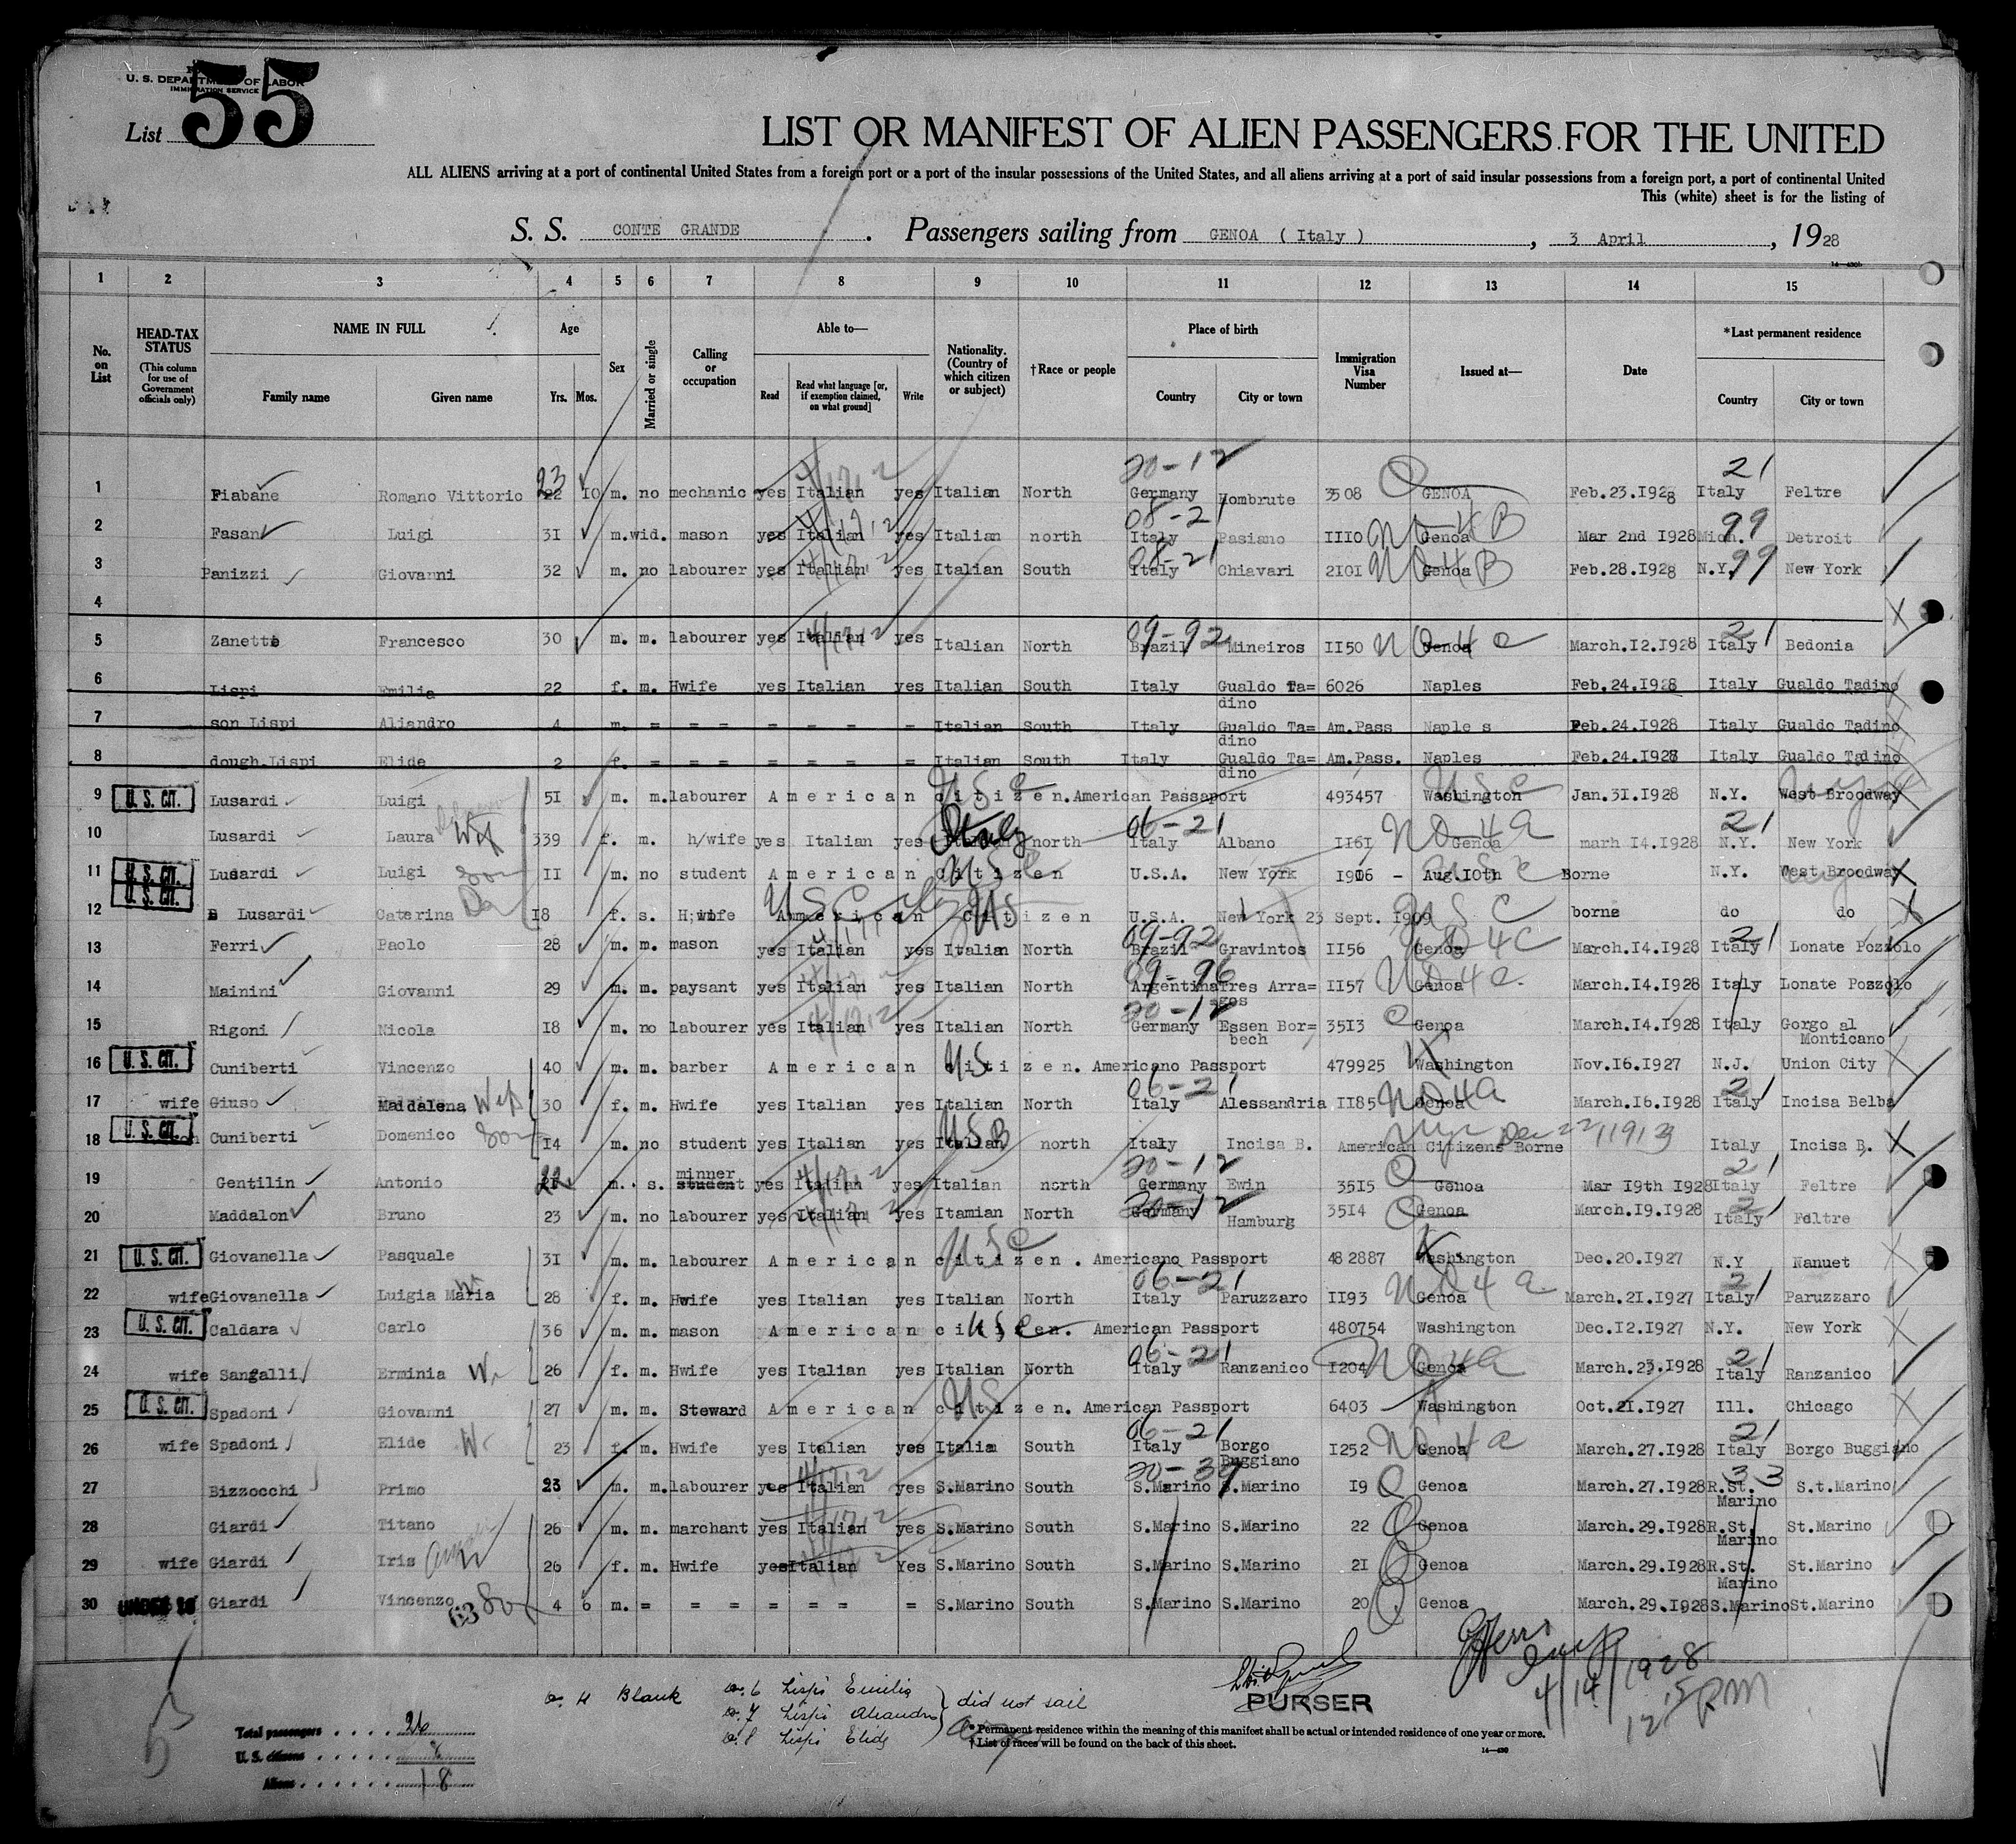 U. S. DEPARTMENT OF LABOR
IMMIGRATION SERVICE
List 55
LIST OR MANIFEST OF ALIEN PASSENGERS FOR THE UNITED
ALL ALIENS arriving at a port of continental United States from a foreign port or a port of the insular possessions of the United States, and all aliens arriving at a port of said insular possessions from a foreign port, a port of continental United
This (white) sheet is for the listing of
S. S. CONTE GRANDE . Passengers sailing from GENOA ( Italy ) , 3 April , 1928
1 2 3 4 5 6 7 8 9 10 11 12 13 14 15
No. on List
HEAD-TAX STATUS (This column for use of Government officials only)
NAME IN FULL Family name Given name
Age Yrs. Mos.
Sex
Married or single
Calling or occupation
Able to— Read Read what language [or, if exemption claimed, on what ground] Write
Nationality. (Country of which citizen or subject)
†Race or people
Place of birth Country City or town
Immigration Visa Number
Issued at—
Date
*Last permanent residence Country City or town
1 Fiabane Romano Vittorio 23 10 m. no mechanic yes Italian yes Italian North Germany Hombrute 3508 GENOA Feb.23.1928 Italy Feltre
2 Fasan Luigi 31 m. wid. mason yes Italian yes Italian north Italy Pasiano 1110 Genoa Mar 2nd 1928 Mich. Detroit
3 Panizzi Giovanni 32 m. no labourer yes Italian yes Italian South Italy Chiavari 2101 Genoa Feb.28.1928 N.Y. New York
4
5 Zanette Francesco 30 m. m. labourer yes Italian yes Italian North Brazil Mineiros 1150 Genoa March.12.1928 Italy Bedonia
6 Lispi Emilia 22 f. m. Hwife yes Italian yes Italian South Italy Gualdo Ta=dino 6026 Naples Feb.24.1928 Italy Gualdo Tadino
7 son Lispi Aliandro 4 m. = = = = = = = Italian South Italy Gualdo Ta=dino Am.Pass Naples Feb.24.1928 Italy Gualdo Tadino
8 dough.Lispi Elide 2 f. = = = = = = = Italian South Italy Gualdo Ta=dino Am.Pass. Naples Feb.24.1928 Italy Gualdo Tadino
9 U. S. CIT. Lusardi Luigi 51 m. m. labourer American citizen. American Passaport 493457 Washington Jan.31.1928 N.Y. West Broodway
10 Lusardi Laura Wif 339 f. m. h/wife yes Italian yes Italy north Italy Albano 1161 Genoa marh 14.1928 N.Y. New York
11 U. S. CIT. Lusardi Luigi Son 11 m. no student American Citizen U.S.A. New York 1906 - Aug 10th Borne N.Y. West Broodway
12 U. S. CIT. Lusardi Caterina Da 18 f. s. H wife American Citizen U.S.A. New York 23 Sept. 1909 borne do do
13 Ferri Paolo 28 m. m. mason yes Italian yes Italian North Brazil Gravintos 1156 Genoa March.14.1928 Italy Lonate Pozzolo
14 Mainini Giovanni 29 m. m. paysant yes Italian yes Italian North Argentina Tres Arra=gos 1157 Genoa March.14.1928 Italy Lonate Pozzolo
15 Rigoni Nicola 18 m. no labourer yes Italian yes Italian North Germany Essen Bor=bech 3513 Genoa March.14.1928 Italy Gorgo al Monticano
16 U. S. CIT. Cuniberti Vincenzo 40 m. m. barber American citizen. Americano Passport 479925 Washington Nov.16.1927 N.J. Union City
17 wife Giuso Maddalena Wif 30 f. m. Hwife yes Italian yes Italian North Italy Alessandria 1185 Genoa March.16.1928 Italy Incisa Belba
18 U. S. CIT. Cuniberti Domenico Son 14 m. no student yes Italian yes Italian north Italy Incisa B. American Citizens Borne Dec 22 1913 Italy Incisa B.
19 Gentilin Antonio 22 m. s. minner student yes Italian yes Italian north Germany Ewin 3515 Genoa Mar 19th 1928 Italy Feltre
20 Maddalon Bruno 23 m. no labourer yes Italian yes Itamian North Germany Hamburg 3514 Genoa March.19.1928 Italy Feltre
21 U. S. CIT. Giovanella Pasquale 31 m. m. labourer American citizen. Americano Passport 482887 Washington Dec.20.1927 N.Y Nanuet
22 wife Giovanella Luigia Maria 28 f. m. Hwife yes Italian yes Italian North Italy Paruzzaro 1193 Genoa March.21.1927 Italy Paruzzaro
23 U. S. CIT. Caldara Carlo 36 m. m. mason American citizen. American Passport 480754 Washington Dec.12.1927 N.Y. New York
24 wife Sangalli Erminia 26 f. m. Hwife yes Italian yes Italian North Italy Ranzanico 1204 Genoa March.23.1928 Italy Ranzanico
25 U. S. CIT. Spadoni Giovanni 27 m. m. Steward American citizen. American Passport 6403 Washington Oct.21.1927 Ill. Chicago
26 wife Spadoni Elide 23 f. m. Hwife yes Italian yes Italia South Italy Borgo Buggiano 1252 Genoa March.27.1928 Italy Borgo Buggiano
27 Bizzocchi Primo 23 m. m. labourer yes Italian yes S.Marino South S.Marino S.Marino 19 Genoa March.27.1928 R.St. Marino S.t.Marino
28 Giardi Titano 26 m. m. marchant yes Italian yes S.Marino South S.Marino S.Marino 22 Genoa March.29.1928 R.St. Marino St.Marino
29 wife Giardi Iris 26 f. m. Hwife yes Italian Yes S.Marino South S.Marino S.Marino 21 Genoa March.29.1928 R.St. Marino St.Marino
30 UNDER 16 Giardi Vincenzo 63 Son 4 6 m. = = = = = = = S.Marino South S.Marino S.Marino 20 Genoa March.29.1928 S.Marino St.Marino
4 Blank
6 Lispi Emilia
7 Lispi Aliandro
8 Lispi Elide
did not sail
PURSER
4/14/1928
12 PM
Total passengers . . . . 26
U. S. citizens . . . . . 8
Aliens . . . . . . 18
* Permanent residence within the meaning of this manifest shall be actual or intended residence of one year or more.
† List of races will be found on the back of this sheet.